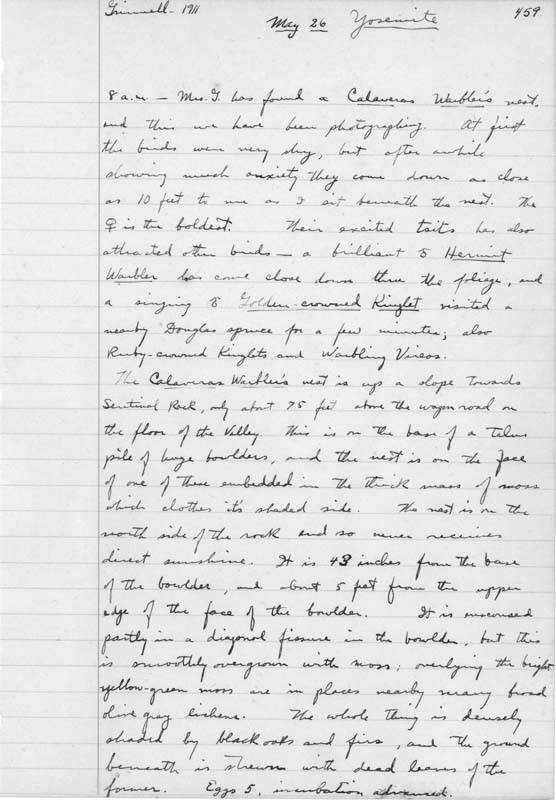 Grinnell - 1911
May 26 Yosemite
459
8 a.m. — Mrs. G. has found a Calaveras Warbler's nest,
and this we have been photographing. At first
the birds were very shy, but after awhile
showing much anxiety they come down as close
as 10 feet to me as I sit beneath the nest. The
♀ is the boldest. Their excited tsits has also
attracted other birds — a brilliant ♂ Hermit
Warbler has come close down thru the foliage, and
a singing ♂ Golden-crowned Kinglet visited a
nearby Douglas spruce for a few minutes; also
Ruby-crowned Kinglets and Warbling Vireos.
The Calaveras Warbler's nest is up a slope towards
Sentinel Rock, only about 75 feet above the wagon road on
the floor of the Valley. This is on the base of a talus
pile of huge bowlders, and the nest is on the face
of one of these embedded in the thick mass of moss
which clothes it's shaded side. The nest is on the
north side of the rock and so never receives
direct sunshine. It is 43 inches from the base
of the bowlder, and about 5 feet from the upper
edge of the face of the bowlder. It is ensconsed
partly in a diagonal fissure in the bowlder, but this
is smoothly overgrown with moss; overlying the bright
yellow-green moss are in places nearby many broad
olive gray lichens. The whole thing is densely
shaded by black oaks and firs, and the ground
beneath is strewn with dead leaves of the
former. Eggs 5, incubation advanced.